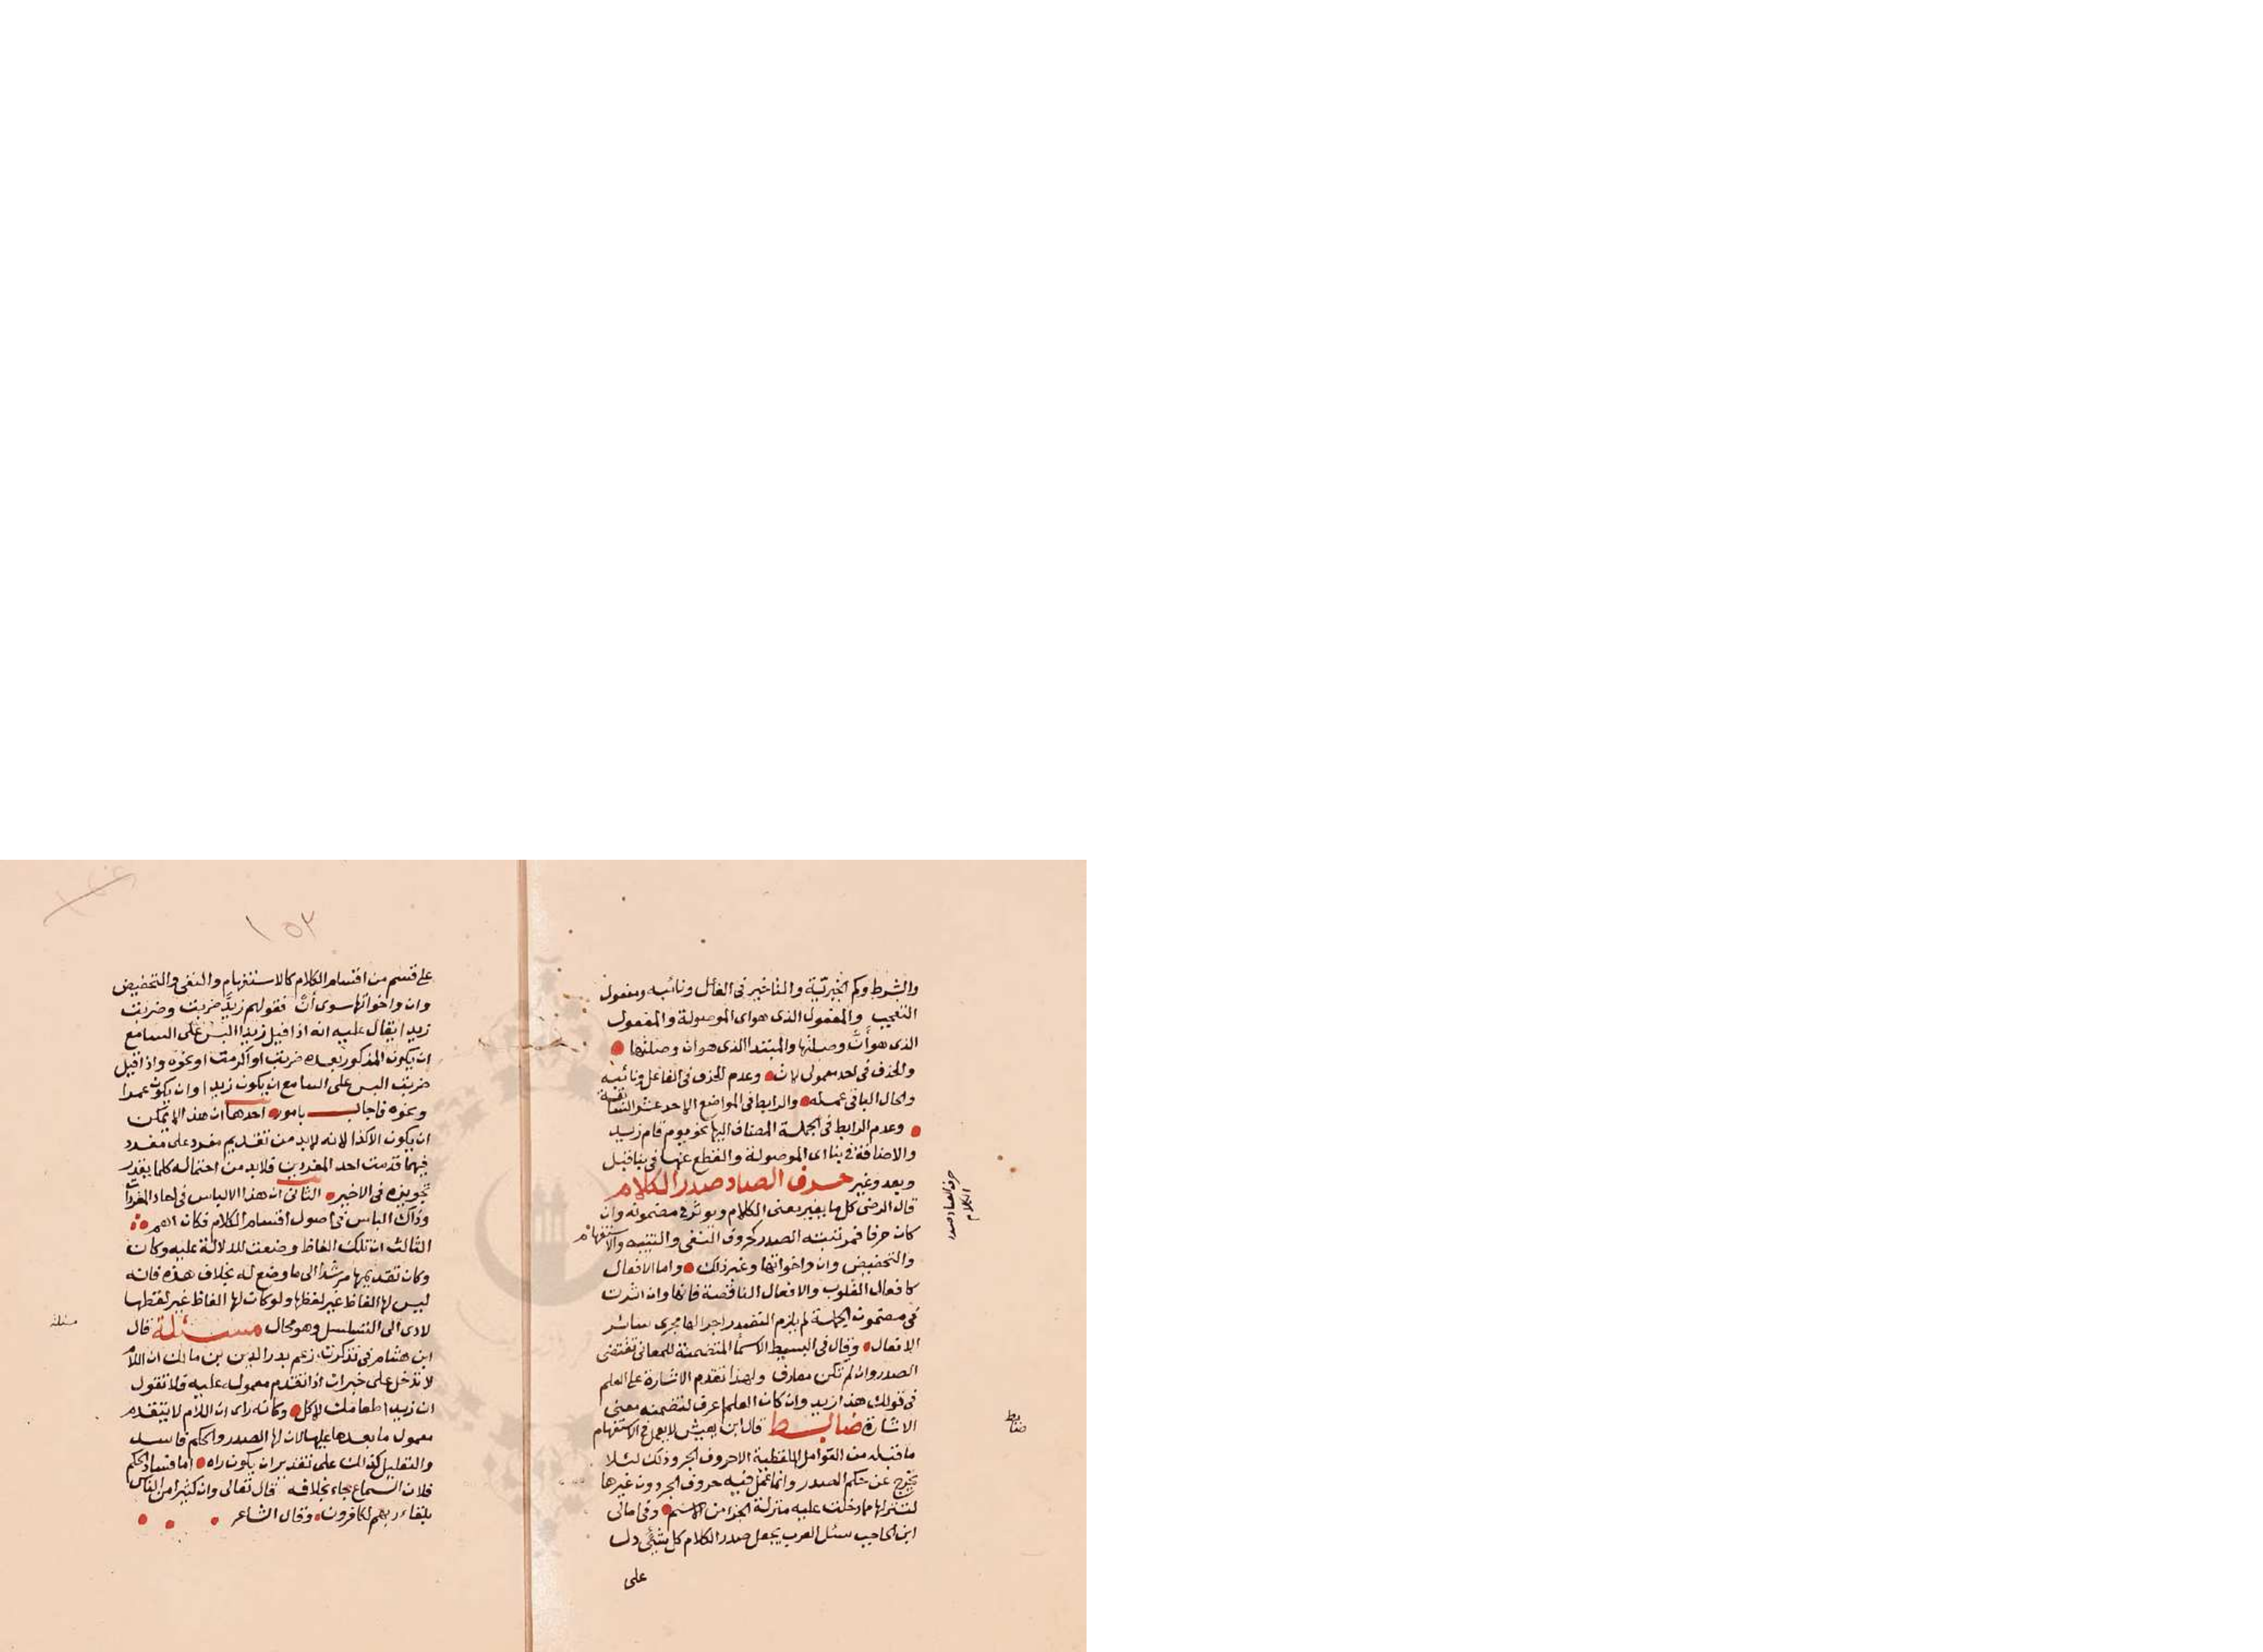 والشرط وكم الخبرتية والتاخير فى الفاعل ونائبه ومفعول
التعجب والمفعول الذى هو اى الموصولة والمفعول
الذى هو أنّ وصلتها والمبتدا الذى هو ان وصلتها
والحذف فى احد معمولى لات وعدم الحذف فى الفاعل ونائبه
والحال الباقى عمله والرابط فى المواضع الاحد عشر السابقة
وعدم الرابط فى الجملة المضاف اليها نحو يوم قام زيد
والاضافة فى بنا اى الموصولة والقطع عنها فى بنا قبل
وبعد وغير حرف الصاد صدر الكلام
قال الرضى كل ما يغير معنى الكلام ويوثر فى مضمونه وان
كان حرفا فمرتبته الصدر كحروف النفى والتنبيه والاستفهام
والتحضيض وان واخواتها وغير ذلك واما الافعال
كافعال القلوب والافعال الناقصة فانها وان اثرت
فى مضمون الجملة لم يلزم التصدر اجرالها مجرى سائر
الافعال وقال فى البسيط الاسما المتضمنة للمعانى تقتضى
الصدر وان لم تكن معارف ولهذا تقدم الاشارة على العلم
فى قولك هذا زيد وان كان العلم اعرف لتضمنه معنى
الاشارة ضابط قال ابن يعيش لا يعمل فى الاستفهام
ما قبله من العوامل اللفظية الا حروف الجر وذلك لئلا
يخرج عن حكم الصدر وانما عمل فيه حروف الجر دون غيرها
لتنزلها مما دخلت عليه منزلة الجزا من الاسم وفى امالى
ابن الحاجب سئل العرب يجعل صدر الكلام كل شئ دل
على
حرف الصاد صدر
الكلام
ضابط
١٥٣
على قسم من اقسام الكلام كالاستفهام والنفى والتحضيض
وان واخواتها سوى أنّ فقولهم زيد ضربت وضربت
زيدا يقال عليه انه اذا قيل زيدا البس على السامع
ان يكون المذكور بعده ضربت او اكرمت او نحوه واذا قيل
ضربت البس على السامع ان يكون زيدا وان يكون عمرا
ونحوه فاجاب بامور احدها ان هذا لا يمكن
ان يكون الا كذا لانه لابد من تقديم مفرد على مفرد
فيهما قدمت احد المفردين فلابد من احتماله كلما يقدر
تجويزه فى الاخير الثانى ان هذا الالباس فى احاد المفردات
وذاك الباس فى اصول اقسام الكلام فكان اهم
الثالث ان تلك الفاظ وضعت للدلالة عليه وكان
وكان تقديمها مرشدا الى ما وضع له بخلاف هذه فانه
ليس لها الفاظ غير لفظها ولو كان لها الفاظ غير لفظها
لادى الى التسلسل وهو محال مسئلة قال
ابن هشام فى تذكرته زعم بدر الدين بن مالك ان اللام
لا تدخل على خبر ان اذا تقدم معموله عليه فلا تقول
ان زيدا طعامك لاكل وكانه راى ان اللام لا يتقدم
معمول ما بعدها عليها لان لها الصدر والحكم فاسد
والتعليل كذلك على تقدير ان يكون راه اما فساد الحكم
فلان السماع جاء بخلافه قال تعالى وان كثيرا من الناس
بلقاء ربهم لكافرون وقال الشاعر
مسئلة